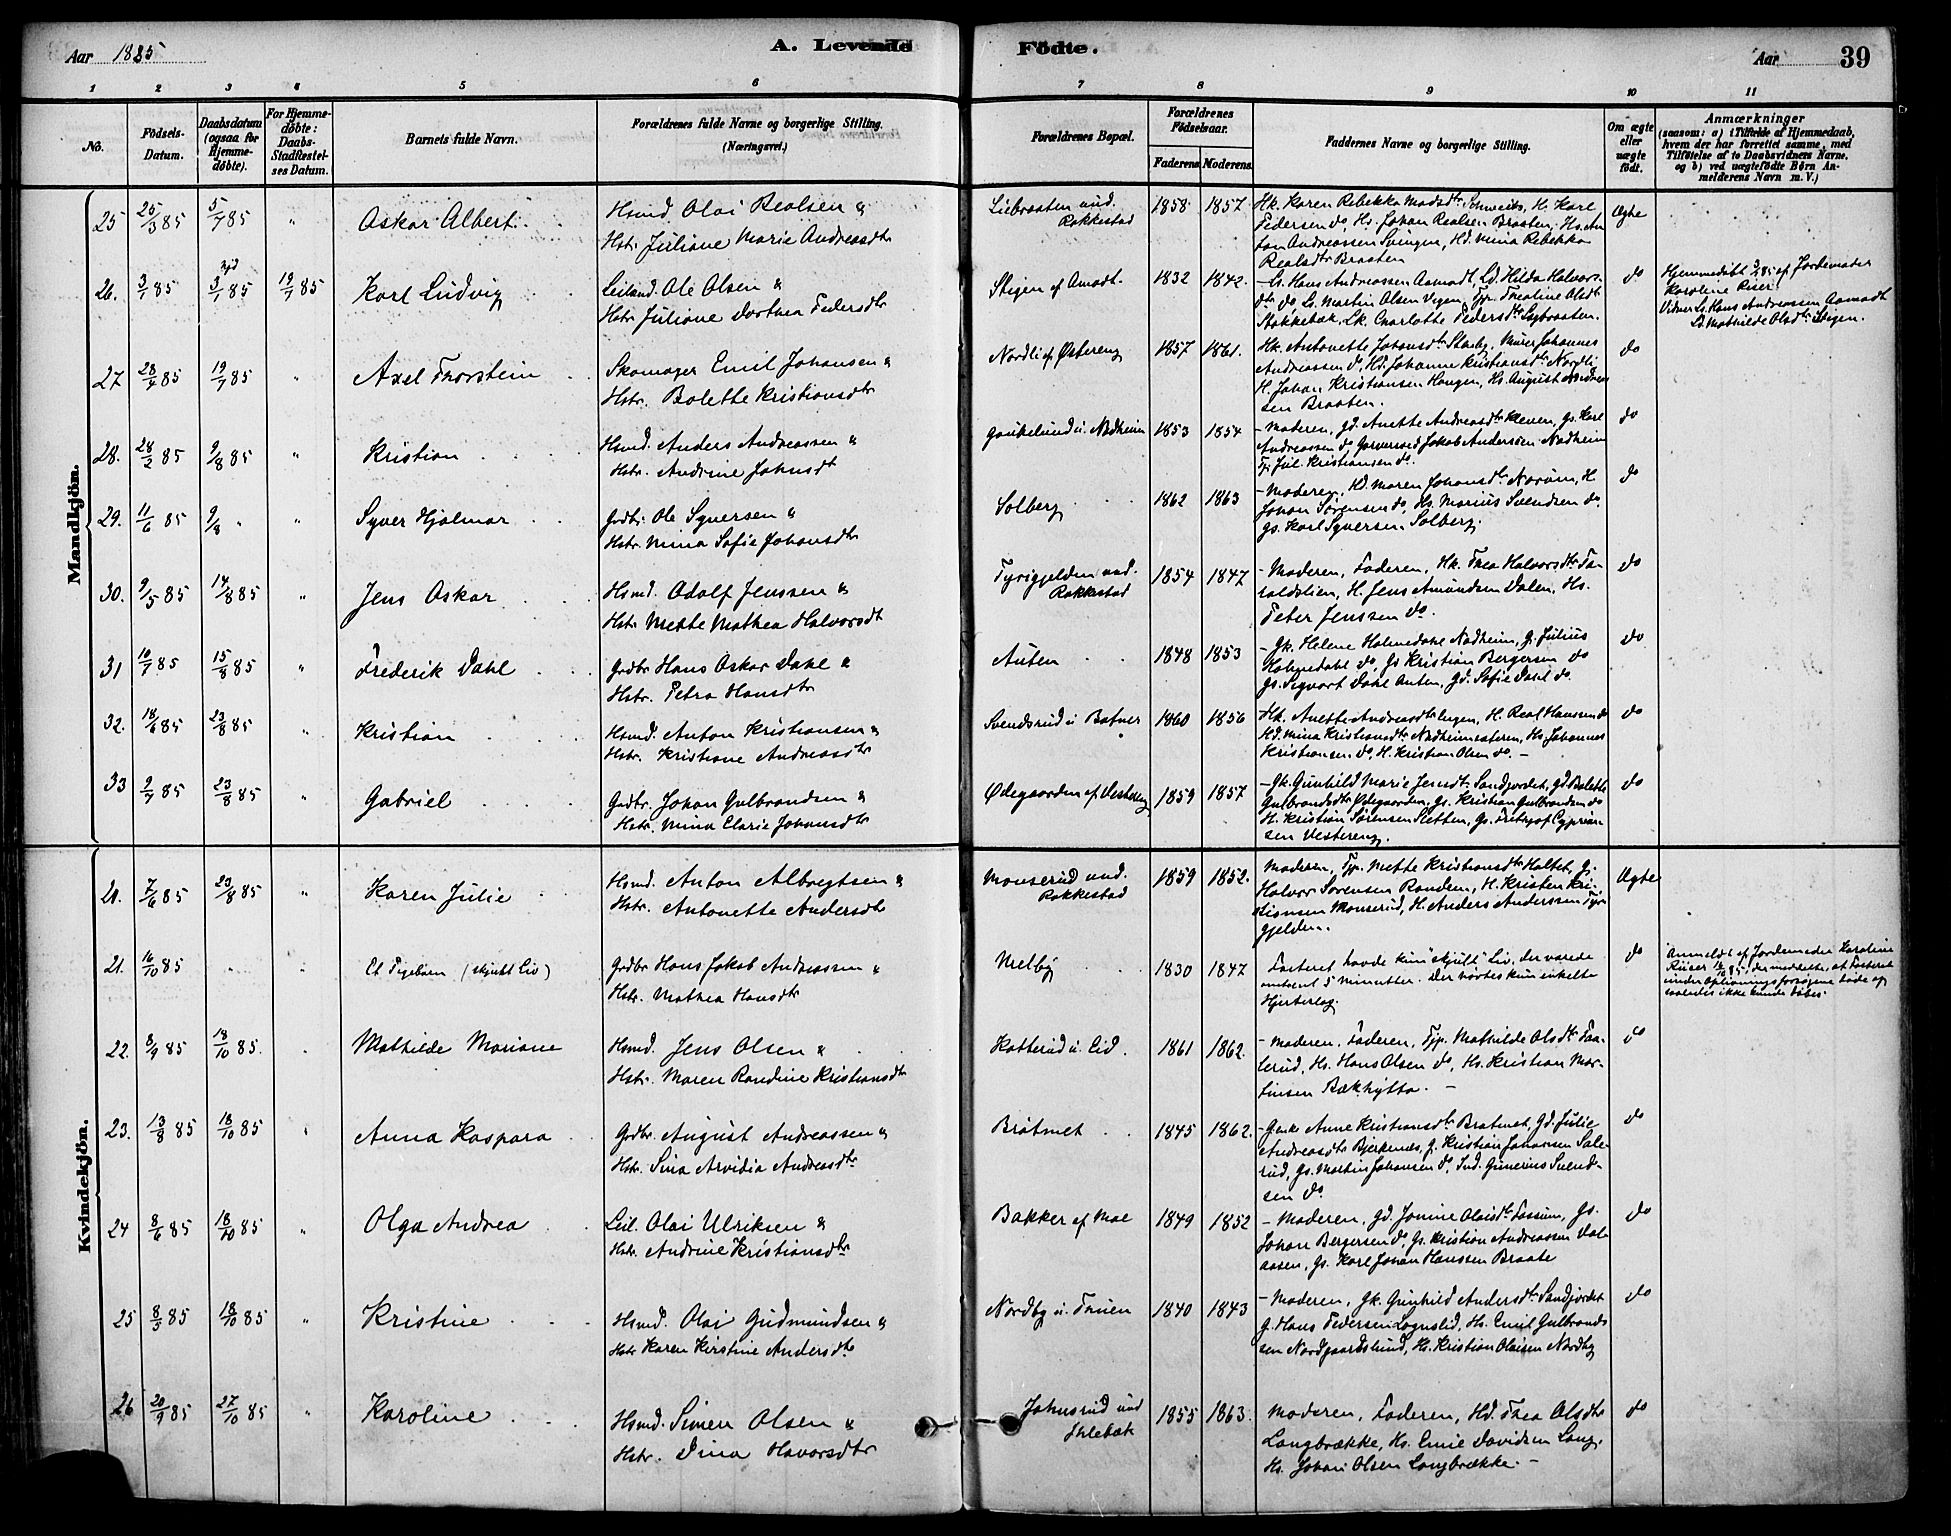 Aar 1885
A. Levende Födte.
Aar 39
1 2 3 4 5 6 7 8 9 10 11
No.
Födsels-Datum.
Daabsdatum (ogsaa for Hjemmedøbte).
For Hjemmedøbte: Daabs-Stadfæstelses Datum.
Barnets fulde Navn.
Forældrenes fulde Navne og borgerlige Stilling. (Næringsvei.)
Forældrenes Bopæl.
Forældrenes Fødselsaar.
Faderens Moderens
Faddernes Navne og borgerlige Stilling.
Om ægte eller uægte født.
Anmærkninger
(saasom: a) i Tilfælde af Hjemmedaab, hvem der har forrettet samme, med Tilføielse af to Daabsvidners Navne, og b) ved uægtefödte Børn Anmelderens Navn m. V.)
Mandkjön.
25 25/3 85 5/7 85 " Oskar Albert
Hsmd. Olai Realsen &
Hstr. Juliane Marie Andreasdtr
Liebraaten und. Rakkestad 1858 1857
Hk. Karen Rebekka Madsdtr H. Karl
Pedersen do, Hs. Johan Realsen Braaten, Hs. An-
ton Andreassen Svingen, Hd. Mina Rebekka
Realsdtr Braaten
Ægte
26. 3/1 85 hjd 3/1 85 19/7 85 Karl Ludvig
Leiland. Ole Olsen &
Hstr Juliane Dorthea Pedersdtr
Stigen af Amodt. 1832 1842
Ls. Hans Andreassen Aamodt, Ld. Hilda Halvors-
dtr do, Ls. Martin Olsen Vegen, Tjp. Thealine Olsdtr
Stokkebæk, Lk. Charlotte Pedersdtr Lybraaten.
do
Hjemmedøbt 3/1 85 af Jordemoder
Karoline Riser
Vidner Ls. Hans Andreassen Aamodt
Ld. Mathilde Olsdtr Stigen.
27 28/4 85 19/7 85 " Axel Thorstein
Skomager Emil Johansen &
Hstr. Bolette Kristiansdtr
Nordli af Østereng 1857 1861.
Hk. Antonette Johansdtr Murer Johannes
Andreassen do, Hd. Johanne Kristiansdtr Nordli
H. Johan Kristiansen Haugen, Hs. August
sen Braaten.
do
28. 28/2 85 9/8 85 " Kristian
Hsmd. Anders Andreassen &
Hstr. Andrine Johnsdt
Gaukelund u. Nadheim 1853 1854
Moderen, Gd. Anette Andreasdtr Kleven, Gs. Karl
Andreassen do, Jakob Andersen Nadheim
Tj. Jul. Kristiansen do.
do
29. 11/6 85 9/8 " " Syver Hjalmar
Grdbr. Ole Syversen &
Hstr. Mina Sofie Johansdtr
Solberg 1862 1863
Moderen, Hd. Maren Johansdtr H
Johan Sørensen do, Hs. Marius Svendsen do,
Gs. Karl Syversen Solberg.
do
30. 9/5 85 14/8 85 " Jens Oskar
Hsmd. Adolf Jenssen &
Hstr Mette Mathea Halvorsdt
Tyrigjelden und. Rakkestad 1854 1847
Moderen, Faderen, Hk. Thea Halvorsdtr Ta-
raldslien, H. Jens Amundsen Dalen, Hs.
Peter Jenssen do.
do
31 10/7 85 15/8 85 " Frederik Dahl
Grdbr Hans Oskar Dahl &
Hstr. Petra Hansdtr
Auten 1848 1853
Gk. Helene Holmedahl Nadheim, G. Julius
Holmedahl do, Gs Kristian Bergersen do
Gs. Sigvart Dahl Auten, Gd. Sofie Dahl do.
do
32. 18/6 85 23/8 85 " Kristian
Hsmd. Anton Kristiansen &
Hstr. Kristiane Andreasdtr
Svendsrud u Botner 1860 1856
Hk. Anette Andreasdtr H. Real Hanssen do
Hd. Mina Kristiansdtr Hs. Johannes
Kristiansen do, H. Kristian Olsen do. –
do
33 2/7 85 23/8 85 " Gabriel
Grdbr. Johan Gulbrandsen &
Hstr. Mina Clarie Johansdtr
Ødegaarden af Vestereng 1859 1857
Gk. Gunhild Marie Jensdtr Sandjordet, Gd Bolette
Gulbrandsdtr Ødegaarden, Gs. Kristian Gulbrandsen do
H. Kristian Sørensen Sletten, Gs. Fritjof Cyprian-
sen Vestereng.
do
Kvindekjön.
20. 7/6 85 23/8 85 " Karen Julie
Hsmd. Anton Albregtsen &
Hstr. Antonette Andersdtr
Monserud und. Rakkestad 1859 1852.
Moderen, Tjp. Mette Kristiansdtr Holtet, G.
Halvor Sørensen Randem, H. Kristen Kri-
stiansen Monserud, H. Anders Anderssen Tyri-
gjelden.
Ægte
21. 16/10 85 " " " Et Pigebarn (skjult Liv)
Grdbr Hans Jakob Andreassen &
Hstr. Mathea Hansdtr
Melby 1830 1847
Fosteret havde kun "skjult" Liv, der varede
omtrent 5 Minutter. Der hørtes kun enkelte
Hjerteslag.
do
Anmeldt af Jordemoder Karoline
Riiser 16/10 85, der meddelte, at Fosteret
under Oplivningsforsøgene døde og
saaledes ikke kunde døbes.
22. 8/9 85 18/10 85. " Mathilde Mariane
Hsmd. Jens Olsen &
Hstr. Maren Randine Kristiansdtr
Katterud u. Eid. 1861 1862.
Moderen, Faderen, Tjp. Mathilde Olsdtr Faa-
lerud, Hs. Hans Olsen do, Hs. Kristian Mar-
tinsen Bækhytta. –
do
23. 13/8 85 18/10 85 " Anna Kaspara
Grdbr. August Andreassen &
Hstr. Sina Arvidia Andreasdtr
Bråtnet 1845 1862.
Genke Anne Kristiansdtr Bratnet, Gd. Julie
Andreasdtr Bjerkenes, G. Kristian Johansen Sale-
rud, Gs. Martin Johansen do, Ind. Gunerius Svend-
sen do
do
24 8/6 85 18/10 85 " Olga Andrea
Leil. Olai Ulriksen &
Hstr. Andrine Kristiansdtr
Bakker af Moe 1849 1852
Moderen, Gd. Jonine Olaisdtr Fossum, Gs.
Johan Bergersen do, Gs. Kristian Andreassen Dal-
aasen, Gs. Karl Johan Hanssen Braate
do
25 8/3 85 18/10 85 " Kristine
Hsmd. Olai Gudmundsen &
Hstr Karen Kirstine Andersdtr
Nordby u. Tuen 1840 1843
Moderen, Gk. Gunhild Andersdtr Sandjordet
G. Hans Pedersen Lognslid, Hs. Emil Gulbrands-
sen Nordgaardslund, Hs. Kristian Olaisen Nordby
do
26 20/9 85 27/10 85 " Karoline
Hsmd. Simen Olsen &
Hstr. Dina Havorsdtr
Johnsrud und Ihlebæk 1855 1863.
Moderen, Faderen, Hd. Thea Olsdtr
Langbrække, Hs. Emil Davidsen Lang.
Hs. Johan Olsen Langbrække. –
do